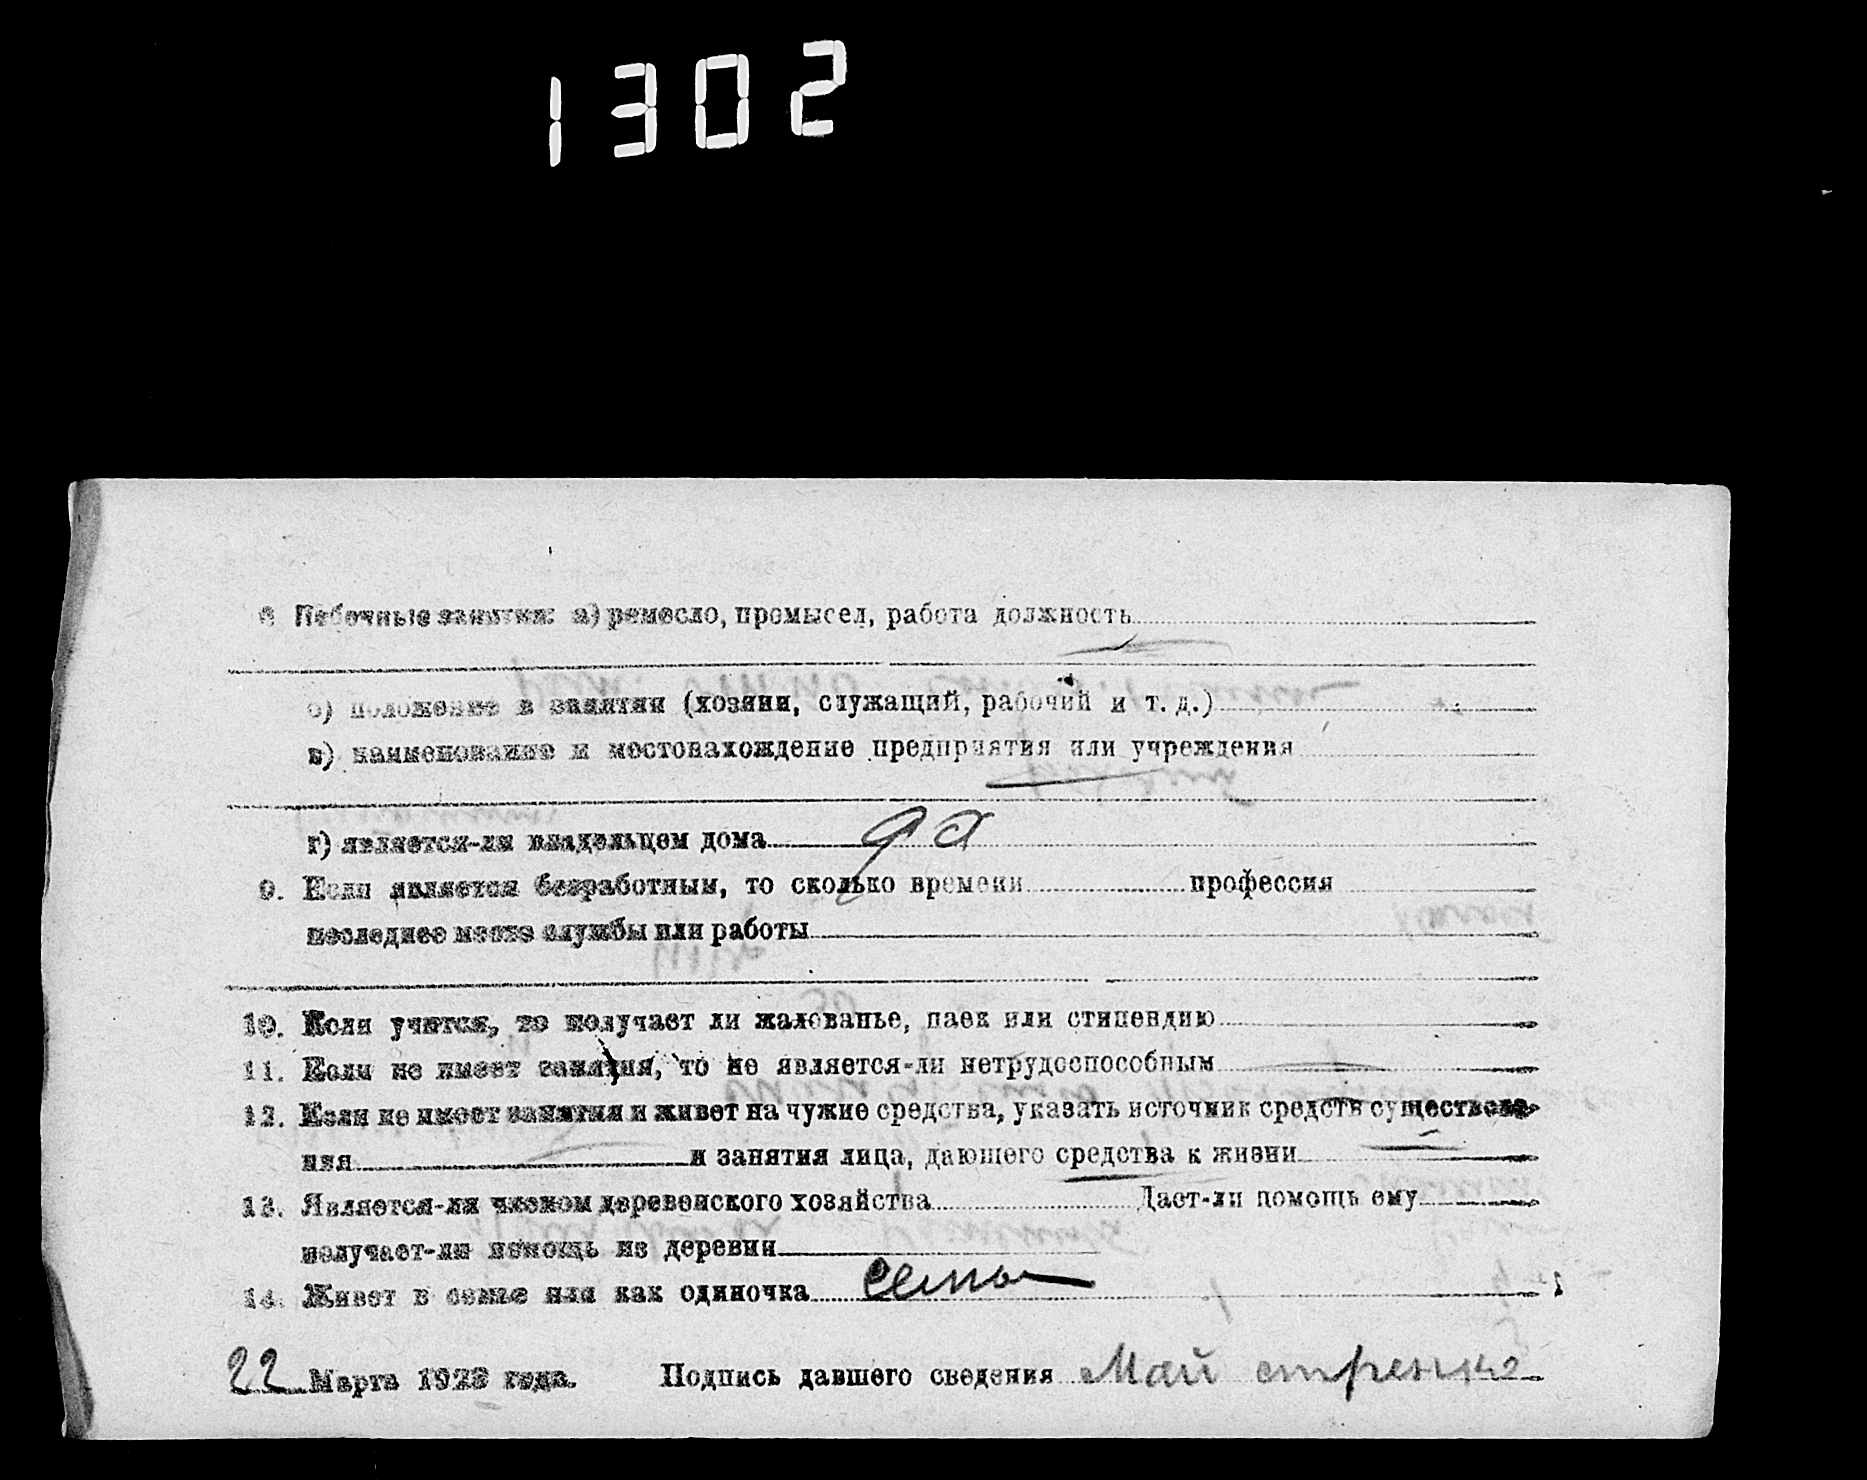 1302
8 Побочные занятия: а) ремесло, промысел, работа должность
б) положение в занятии (хозяин, служащий, рабочий и т. д.)
в) наименование и местонахождение предприятия или учреждения
г) является-ли владельцем дома да
9. Если является безработным, то сколько времени профессия
последнее место службы или работы
10. Если учится, то получает ли жалованье, паек или стипендию
11. Если не имеет занятия, то не является-ли нетрудоспособным
12. Если не имеет занятия и живет на чужие средства, указать источник средств существова-
ния и занятия лица, дающего средства к жизни
13. Является-ли членом деревенского хозяйства Дает-ли помощь ему
получает-ли помощь из деревни
14. Живет в семье или как одиночка
22 Марта 1923 года. Подпись давшего сведения Май стренко